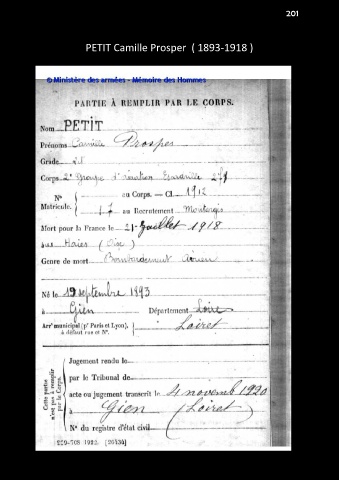 201
PETIT Camille Prosper ( 1893-1918 )
© Ministère des armées - Mémoire des Hommes
PARTIE À REMPLIR PAR LE CORPS.
Nom PETIT
Prénoms Camille Prosper
Grade
Corps 2e Groupe d'aviation Escadrille
No au Corps. — Cl. 1912
Matricule. 17 au Recrutement Montargis
Mort pour la France le 21 Juillet 1918
sur Haies (Oise)
Genre de mort Bombardement Aérien
Né le 19 septembre 1893
à Gien Département Loiret
Arrt municipal (pr Paris et Lyon), à défaut rue et No. Loiret
Cette partie n'est pas à remplir par le Corps.
Jugement rendu le
par le Tribunal de
acte ou jugement transcrit le 4 novemb 1920
à Gien (Loiret)
No du registre d'état civil